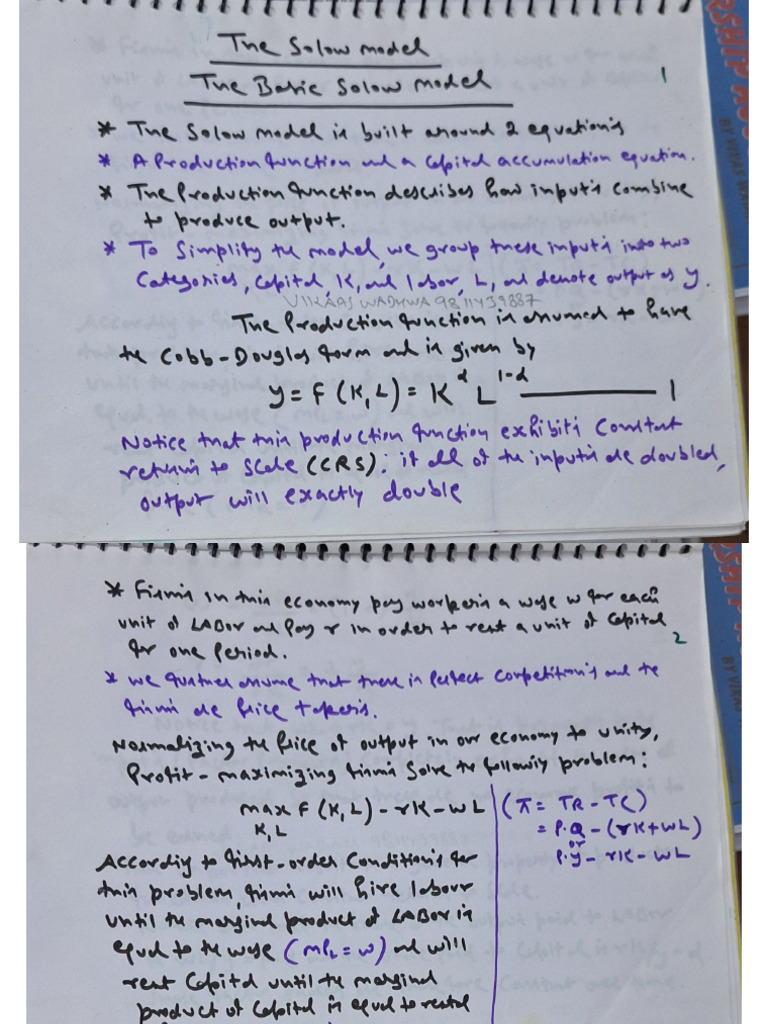 The Solow model
The Basic Solow model
1
* The Solow model is built around 2 equation's
* A Production function and a Capital accumulation equation.
* The Production function describes how input's combine
to produce output.
* To Simplify the model, we group these input's into two
Categories, Capital, K, and labor, L, and denote output as y.
VIKAAS WADHWA 9811439887
The Production function is assumed to have
the Cobb-Douglas form and is given by
y = F (K, L) = K^α L^1-α ——— 1
Notice that this production function exhibits Constant
returns to scale (CRS). if all of the input's are doubled,
output will exactly double
* Firms in this economy pay workers a wage w for each
unit of LABor and Pay r in order to rest a unit of Capital
for one Period.
2
* we further assume that there is Perfect Competition's and the
firms are Price takers.
Normalizing the Price of output in our economy to unity,
Profit-maximizing firms solve the following problem:
max F (K, L) - rK - wL
K, L
(π = TR - TC)
= P.Q - (rK + WL)
or
P.y - rK - WL
According to first-order Condition's for
this problem, firms will hire labour
until the marginal product of LABor is
equal to the wage (mPL = w) and will
rent Capital until the marginal
product of Capital is equal to rental
BY VIKAS